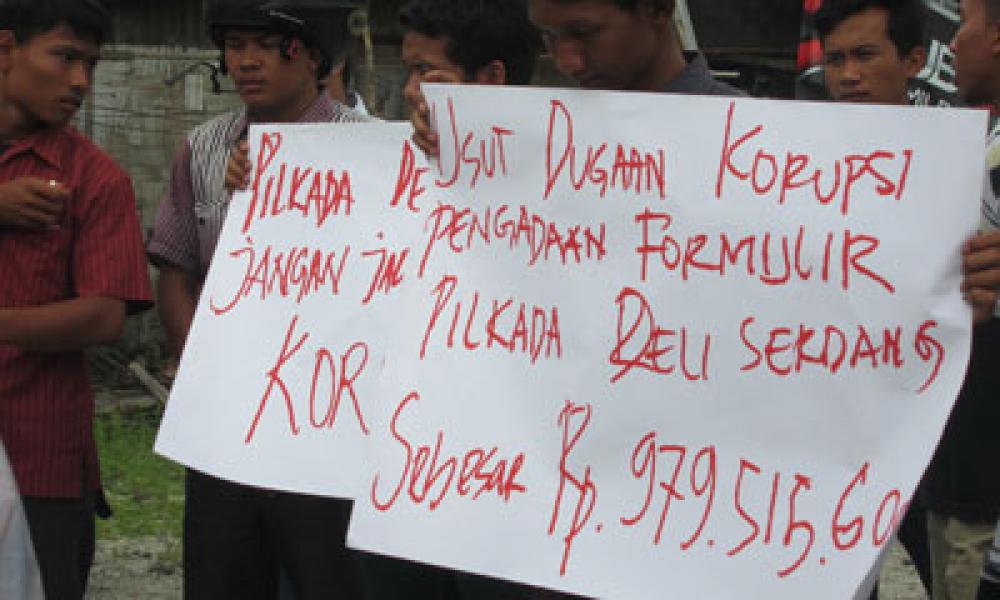 PILKADA DE
JANGAN
KOR
USUT DUGAAN KORUPSI
PENGADAAN FORMULIR
PILKADA DELI SERDANG
Sebesar Rp. 979.515.60